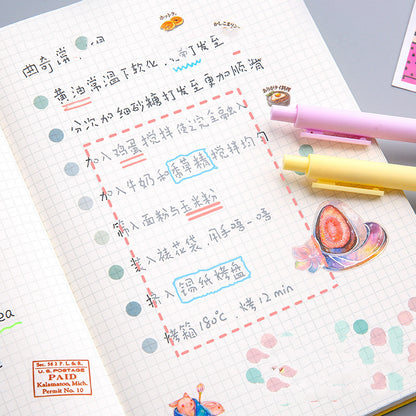 曲奇 浆
黄油常温下软化，打发至
分次加细砂糖打发至更加顺滑
加入鸡蛋搅拌使之完全融入
加入牛奶和香草精搅拌均匀
筛入面粉与玉米粉
装入裱花袋 用手
挤入锡纸烤盘
烤箱180℃. 烤12min
ea
Sec. 562 P. L. & R.
U. S. POSTAGE
PAID
Kalamazoo, Mich.
Permit No. 10